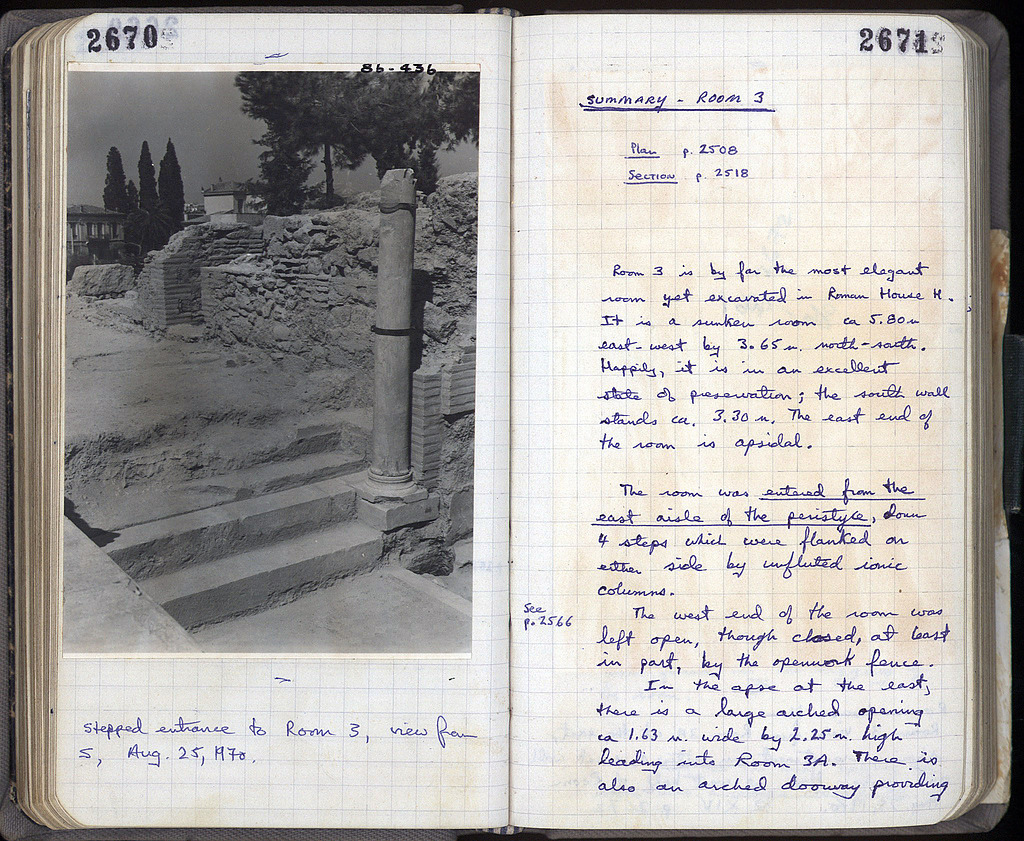 2670
86-436
stepped entrance to Room 3, view from
S, Aug. 25, 1970.
2671
SUMMARY - ROOM 3
Plan p. 2508
SECTION p. 2518
Room 3 is by far the most elegant
room yet excavated in Roman House H.
It is a sunken room ca 5.80 m
east-west by 3.65 m. north-south.
Happily, it is in an excellent
state of preservation; the south wall
stands ca. 3.30 m. The east end of
the room is apsidal.
The room was entered from the
east aisle of the peristyle, down
4 steps which were flanked on
either side by unfluted ionic
columns.
See
p. 2566
The west end of the room was
left open, though closed, at least
in part, by the openwork fence.
In the apse at the east,
there is a large arched opening
ca 1.63 m. wide by 2.25 m. high
leading into Room 3A. There is
also an arched doorway providing